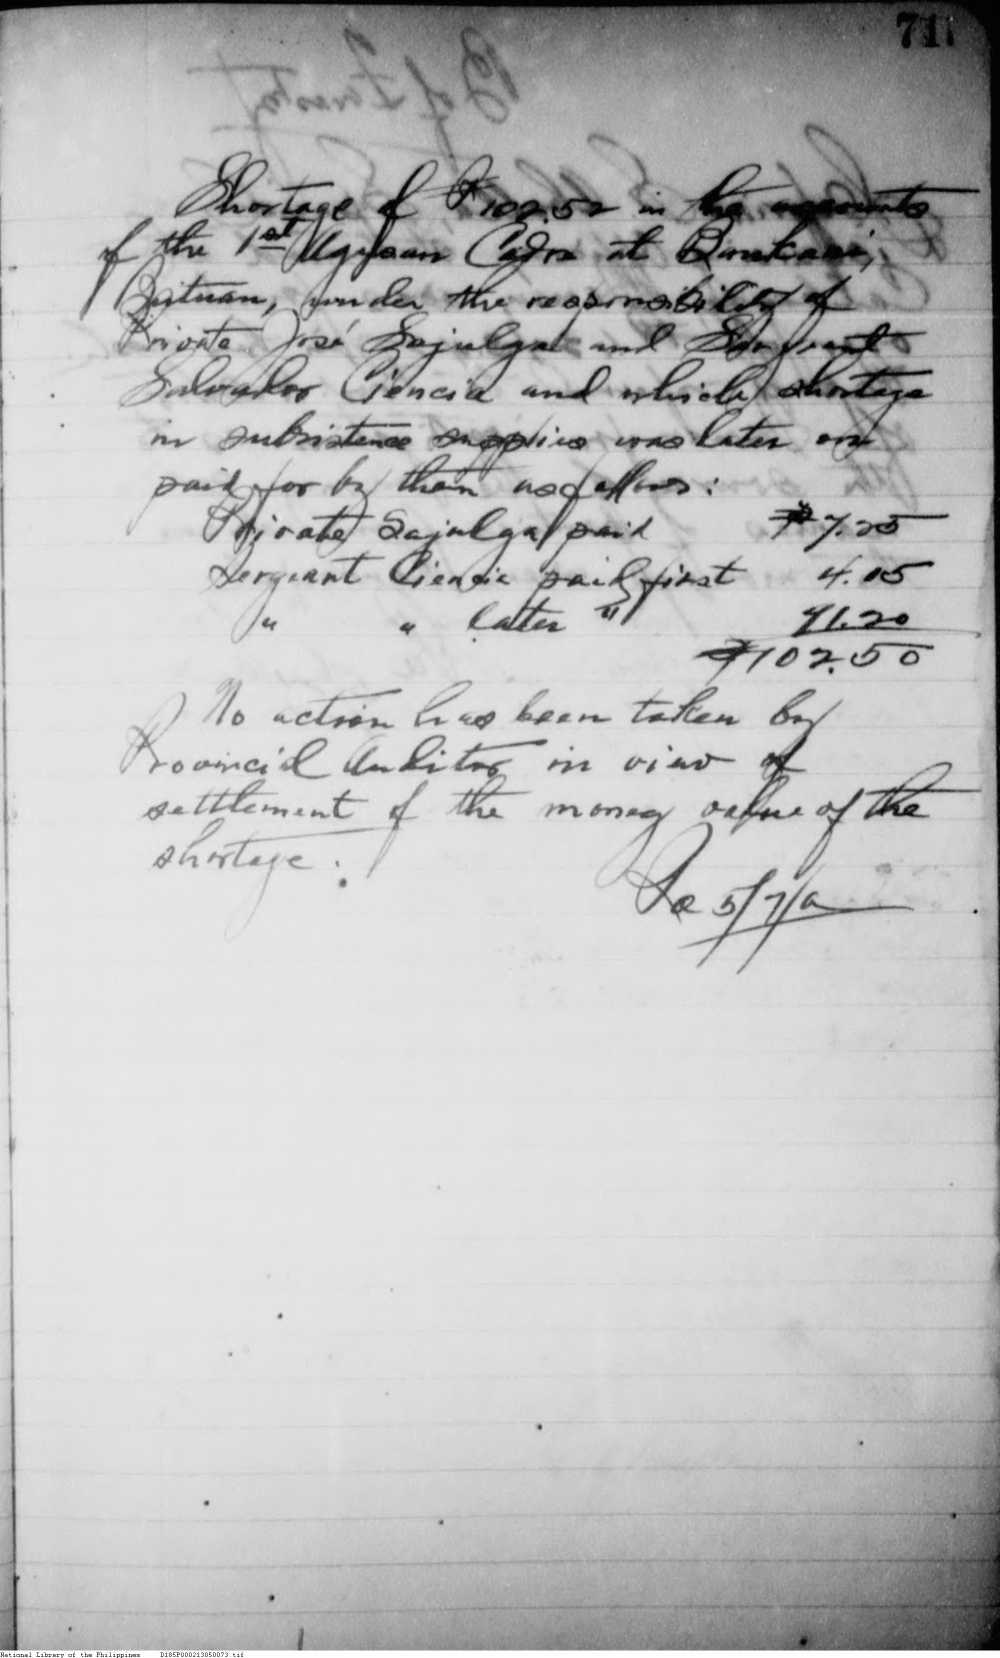 71
Shortage of ₱102.52 in the accounts
of the 1st Agusan Cadre at Bunkasi,
Butuan, under the responsibility of
Private José Sajulga and Sergeant
Salvador Ciencia and which shortage
in subsistence supplies was later on
paid for by them as follows:
Private Sajulga paid ₱7.25
Sergeant Ciencia paid first 4.05
" " later " 91.20
₱102.50
No action has been taken by
Provincial Auditor in view of
settlement of the money value of the
shortage.
5/7/
National Library of the Philippines D185P000213050073.tif